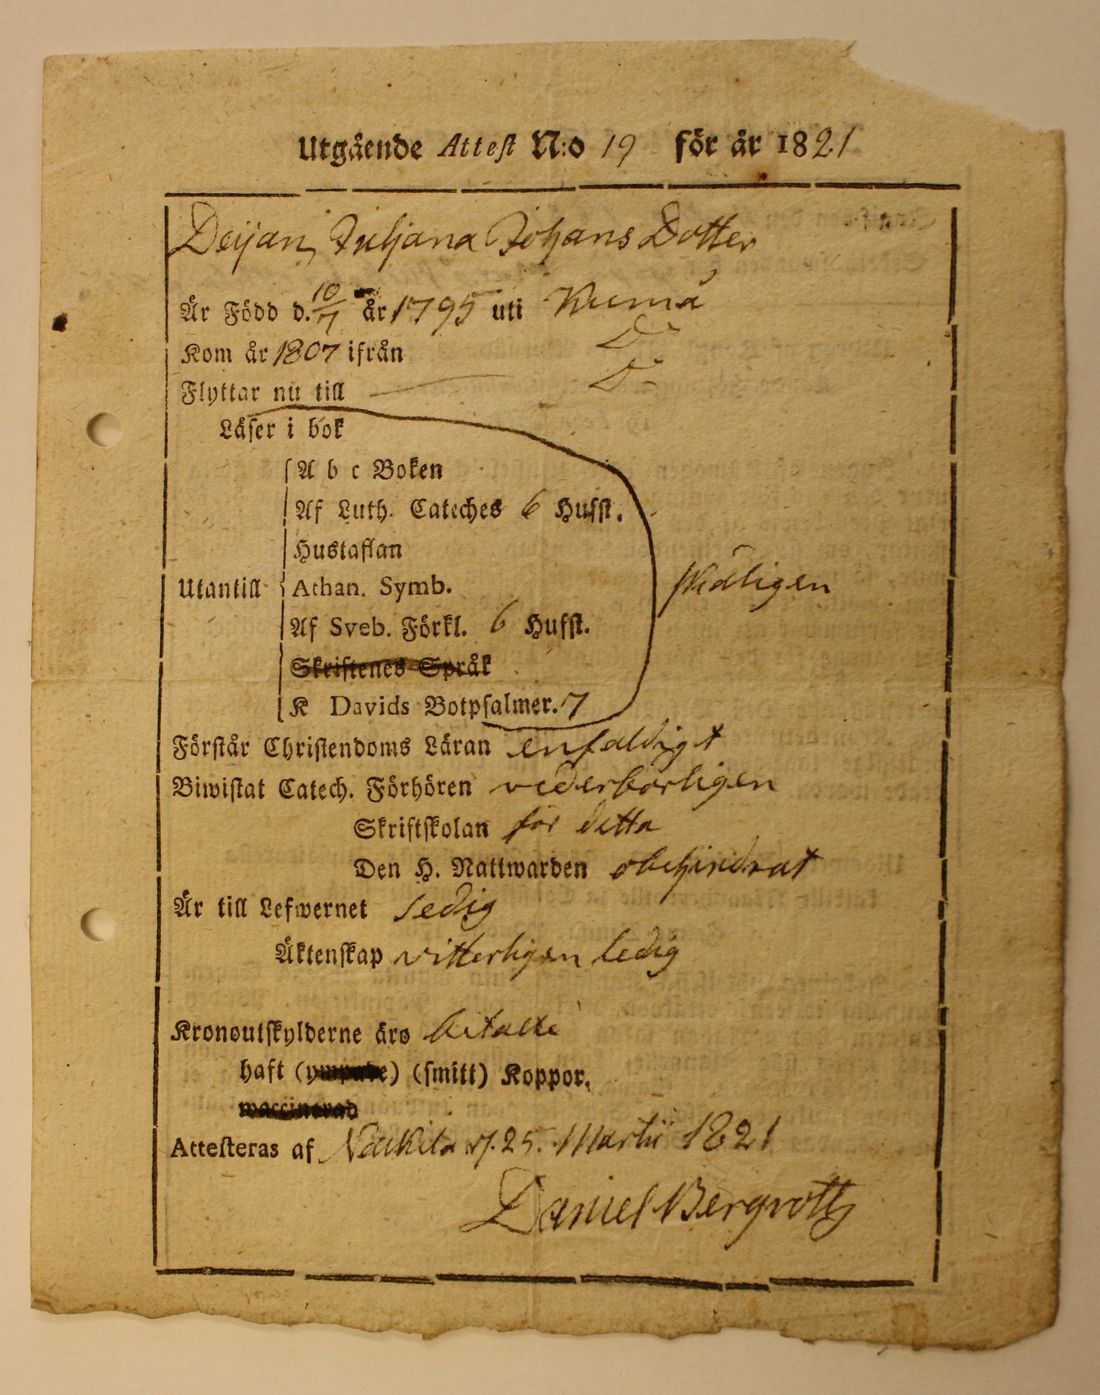 Utgående Attest N:o 19 för år 1821
Deijan, Juljana Johans Dotter
Är Född d. 10/7 år 1795 uti Kumå
Kom år 1807 ifrån D:o
Flyttar nu till — D:o
Läser i bok
A b c Boken
Af Luth. Cateches 6 Hufst.
Hustaflan
Utantill Athan. Symb. skäligen
Af Sveb. Förkl. 6 Hufst.
Skriftenes Språk
K Davids Botpsalmer. 7
Förstår Christendoms Läran enfaldigt
Biwistat Catech. Förhören vederbörligen
Skriftskolan för detta
Den H. Nattwarden obehindrat
Är till Lefwernet sedig
Äktenskap vitterligen ledig
Kronoutskylderne äro betalte
haft (ympade) (smitt) Koppor.
waccinerad
Attesteras af d. 25. Martii 1821
Daniel Bergroth